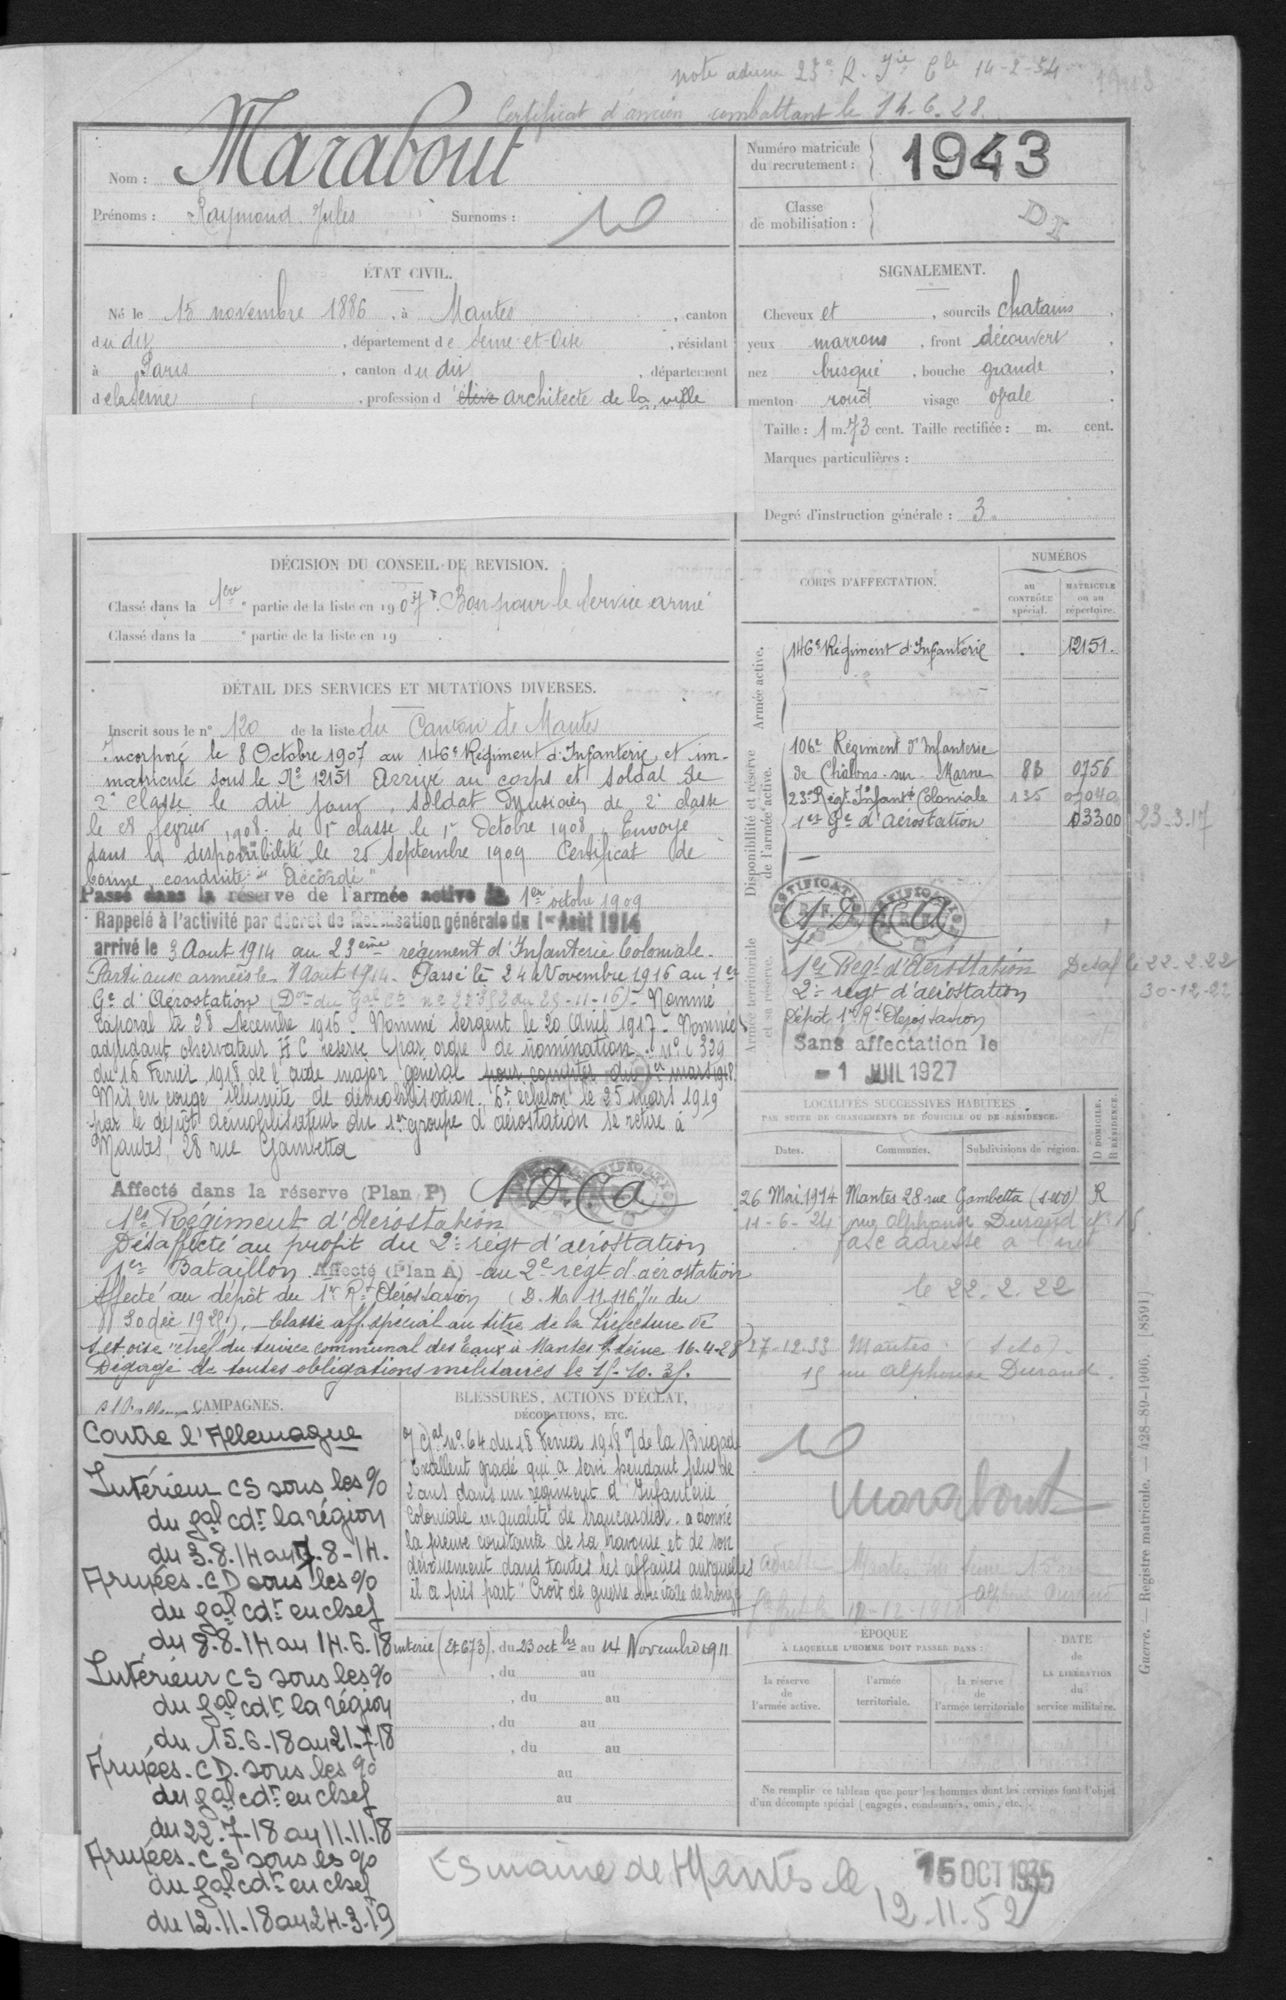 note adresse 23e R. Iie Cle 14-2-34
Certificat d'ancien combattant le 14-6-28.
Nom : Marabout
Prénoms : Raymond Jules Surnoms :
Numéro matricule du recrutement : 1943
Classe de mobilisation :
ÉTAT CIVIL.
Né le 15 novembre 1886, à Mantes, canton
du dit, département de Seine-et-Oise, résidant
à Paris, canton du dit, département
de la Seine, profession d'élève architecte de la ville
SIGNALEMENT.
Cheveux et, sourcils chatains,
yeux marrons, front découvert,
nez busqué, bouche grande,
menton rond visage ovale.
Taille : 1 m. 73 cent. Taille rectifiée : m. cent.
Marques particulières :
Degré d'instruction générale : 3.
DÉCISION DU CONSEIL DE REVISION.
Classé dans la 1ère partie de la liste en 1907. Bon pour le service armé
Classé dans la e partie de la liste en 19
DÉTAIL DES SERVICES ET MUTATIONS DIVERSES.
Inscrit sous le n° 120 de la liste du Canton de Mantes
Incorporé le 8 Octobre 1907 au 146e Régiment d'Infanterie et im-
matriculé sous le No 12151 Arrivé au corps et soldat de
2e classe le dit jour, soldat Musicien de 2e classe
le 28 février 1908. de 1e classe le 1er Octobre 1908. Envoyé
dans la disponibilité le 25 Septembre 1909 Certificat de
bonne conduite "Accordé"
Passé dans la réserve de l'armée active le 1er octobre 1909
Rappelé à l'activité par décret de Mobilisation générale du 1er Août 1914
arrivé le 3 Aout 1914 au 23eme régiment d'Infanterie Coloniale.
Parti aux armées le 8 Aout 1914. Passé le 24 Novembre 1916 au 1er
Ge d'Aérostation (Don du Gal Ct no 22352 du 25-11-16). Nommé
Caporal le 28 Décembre 1916. Nommé Sergent le 20 Avril 1917. Nommé
adjudant observateur H C reserve par ordre de nomination No C 339
du 16 Fevrier 1918 de l'aide major général pour compter du 1er mars 1918.
Mis en congé illimité de démobilisation. 6e échelon le 25 mars 1919
par le dépôt démobilisateur du 1er groupe d'aérostation se retire à
Mantes, 28 rue Gambetta
Affecté dans la réserve (Plan P) 1 D. C a
1er Régiment d'Aérostation
Désaffecté au profit du 2e régt d'aérostation
1er Bataillon. Affecté (Plan A) au 2e regt d'aérostation
Affecté au dépôt du 1er Rt Aérostation (D. M. 11.116 7/11 du
30 déc 1922). Classé aff. spécial au titre de la Préfecture de
S et oise chef du service communal des Eaux à Mantes s/ Seine 16-4-28
Dégagé de toutes obligations militaires le 15-10-35.
CORPS D'AFFECTATION.
NUMÉROS
au CONTRÔLE spécial.
MATRICULE ou au répertoire.
Armée active.
146e Régiment d'Infanterie . 12151.
Disponibilité et réserve de l'armée active.
106e Régiment d'Infanterie
de Châlons-sur-Marne 83 0756
23e Régt Infante Coloniale 135 07040
1er Ge d'Aérostation 03300 23-3-17
Armée territoriale et sa réserve.
1er Regt d'Aérostation Désaf le 22-2-22
2e régt d'aérostation 30-12-22
Dépôt 1er Rt Aérostation
Sans affectation le
-1 JUIL 1927
LOCALITÉS SUCCESSIVES HABITÉES
PAR SUITE DE CHANGEMENTS DE DOMICILE OU DE RÉSIDENCE.
Dates. Communes. Subdivisions de région. D DOMICILE. R RÉSIDENCE.
26 Mai 1914 Mantes 28 rue Gambetta (S et O) R
11-6-24 rue Alphonse Durand No 15
le 22.2.22
27-12-33 Mantes (S et O).
15 rue Alphonse Durand.
Marabout
CAMPAGNES.
Contre l'Allemagne
Intérieur CS sous les %
du gal cdt la région
du 3.8.14 au 7-8-14.
Armées-CD sous les %
du gal cdt en chef
du 8.8.14 au 14.6.18
Intérieur CS sous les %
du gal cdt la région
du 15-6-18 au 21-7-18
Armées-CD. sous les %
du gal cdt en chef
du 22-7-18 au 11-11-18
Armées-CS sous les %
du gal cdt en chef
du 12-11-18 au 24-3-19
BLESSURES, ACTIONS D'ÉCLAT,
DÉCORATIONS, ETC.
O/ Gal no 64 du 18 Fevrier 1918 de la Brigade
"Excellent gradé qui a servi pendant plus de
2 ans dans un régiment d'Infanterie
Coloniale en qualité de brancardier. a donné
la preuve constante de sa bravoure et de son
dévouement dans toutes les affaires auxquelles
il a pris part" Croix de guerre une étoile de bronze
nterie (Et 673), du 23 octbre au 14 Novembre 1911
, du au
, du au
, du au
, du au
au
au
ÉPOQUE
À LAQUELLE L'HOMME DOIT PASSER DANS :
la réserve de l'armée active.
l'armée territoriale.
la réserve de l'armée territoriale
DATE de LA LIBÉRATION du service militaire.
Ne remplir ce tableau que pour les hommes dont les services font l'objet
d'un décompte spécial (engagés, condamnés, omis, etc.).
Guerre. — Registre matricule. — 428-89-1906. [8591]
mairie de Mantes le
15 OCT 1935
12.11.52